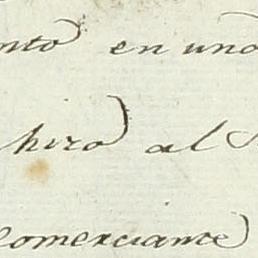 nto en uno
hizo al
comerciante